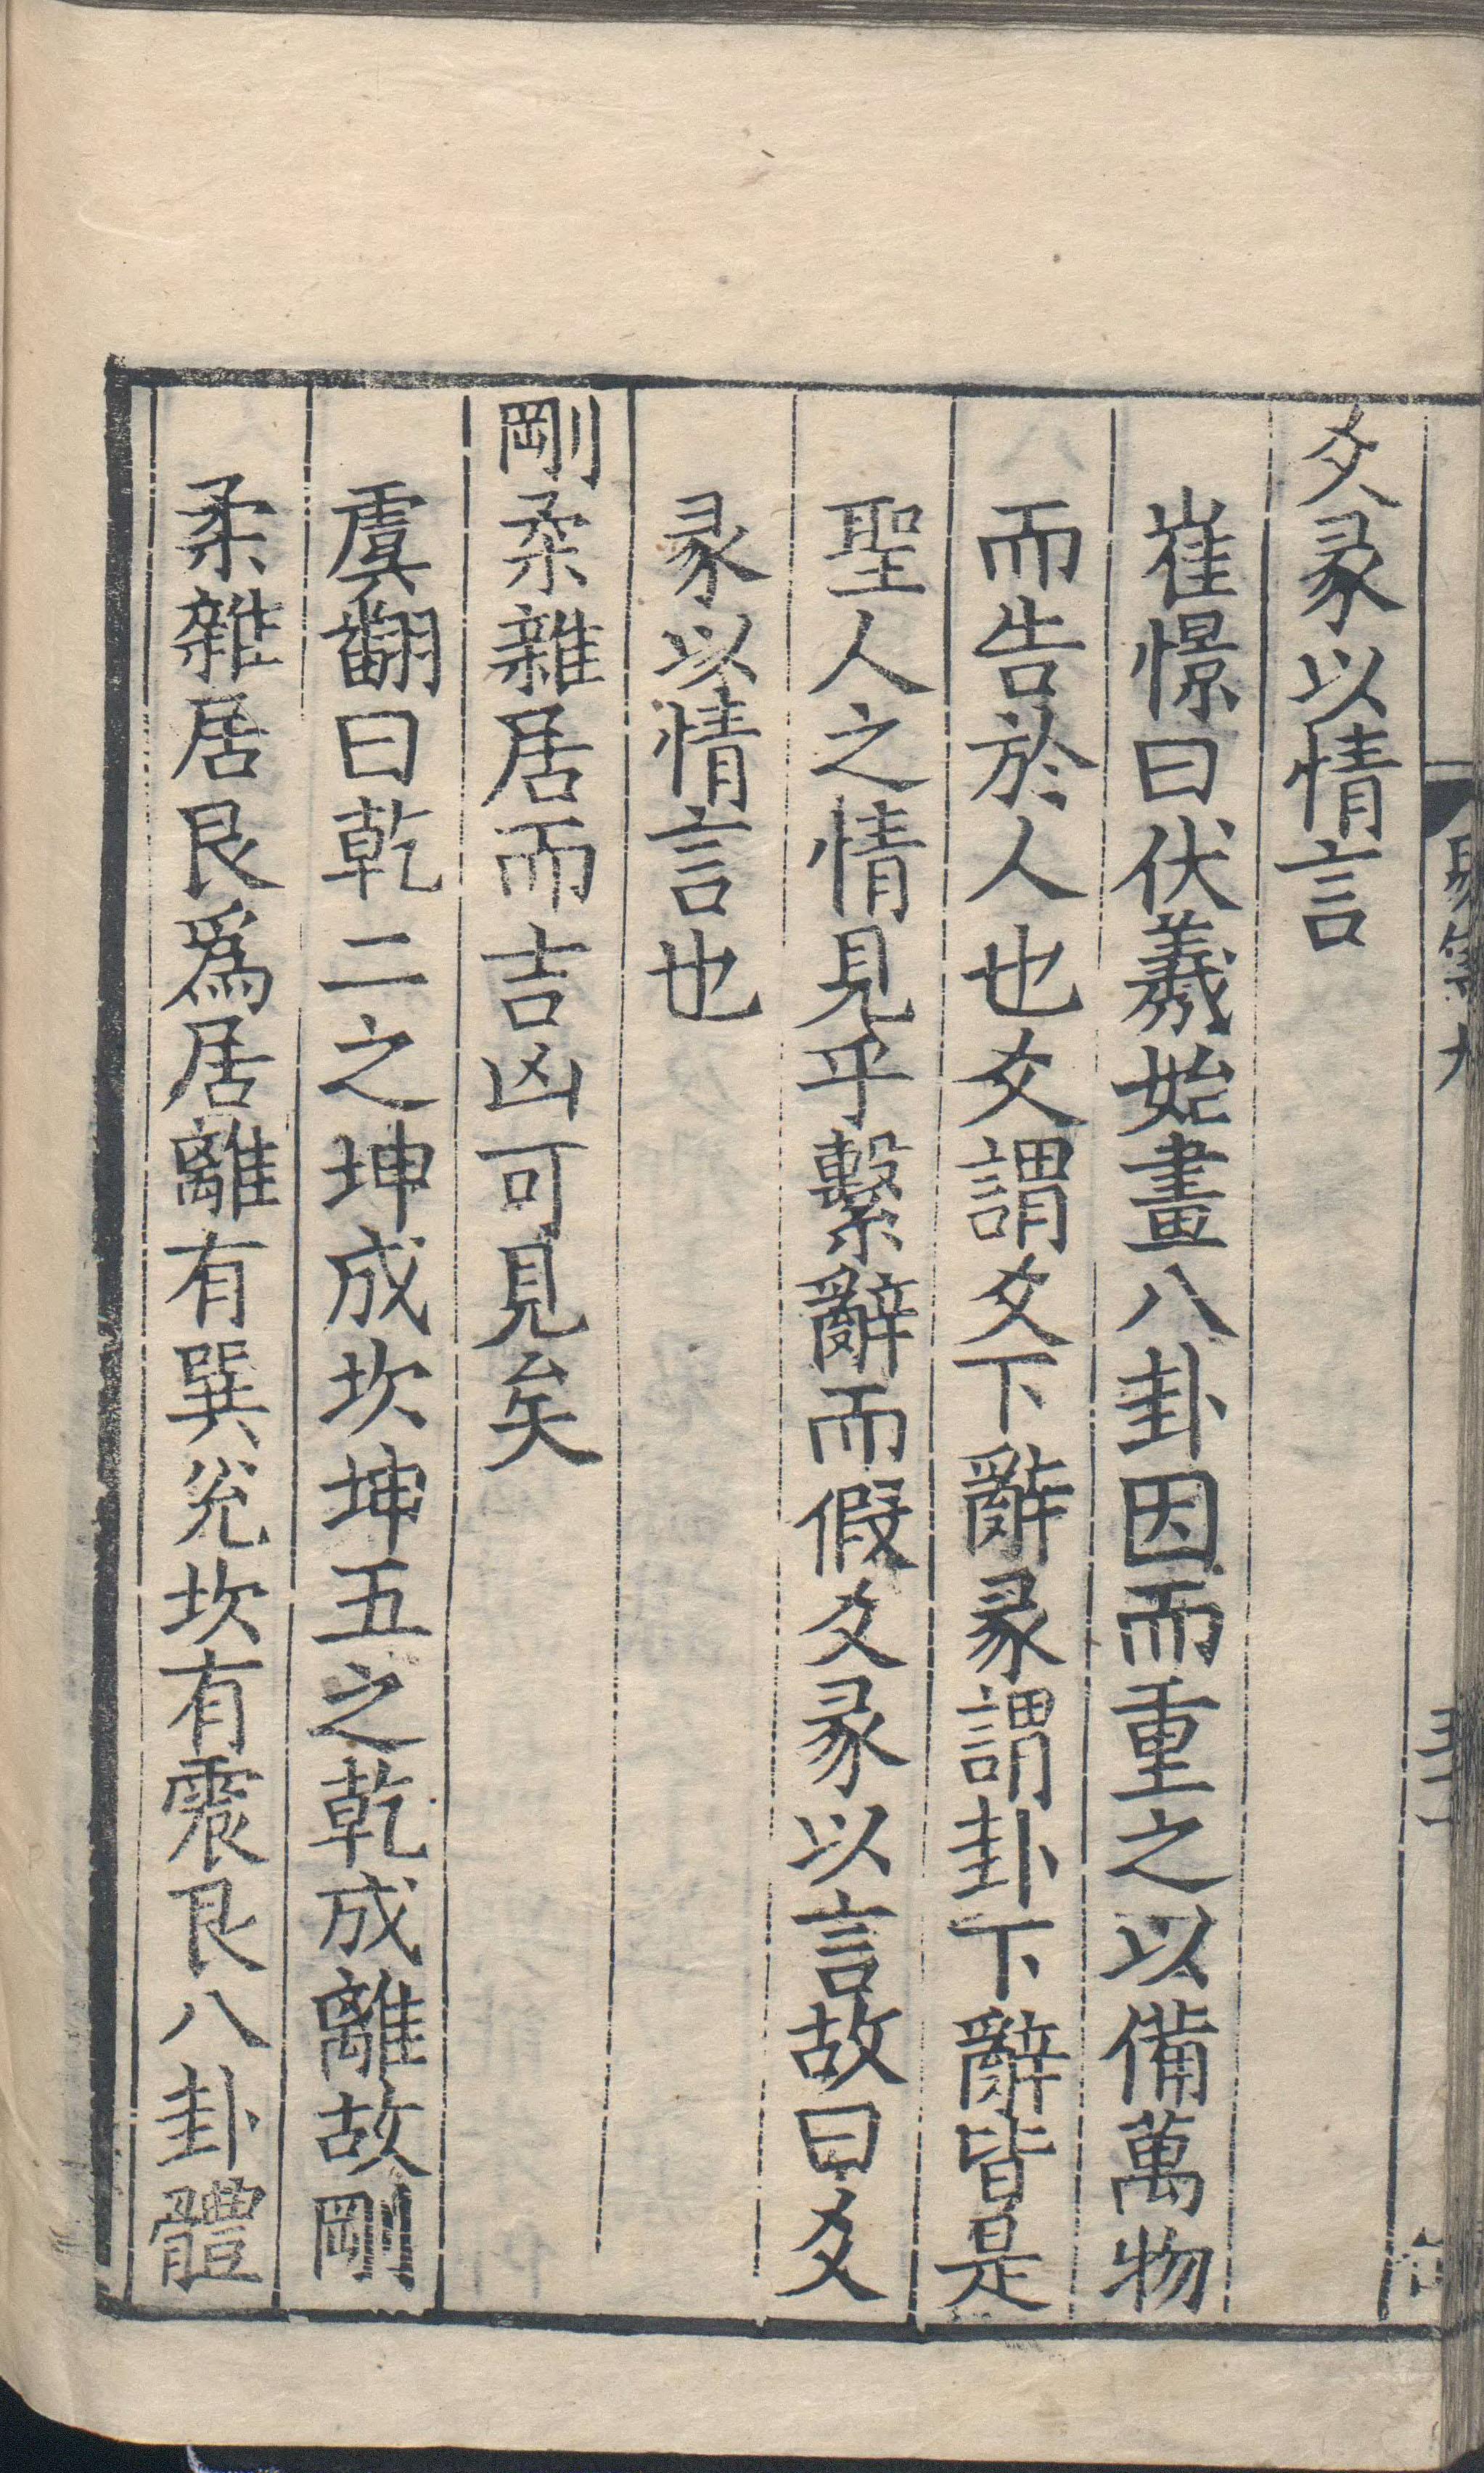 爻彖以情言
崔憬曰伏羲始畫八卦因而重之以備萬物
而告於人也爻謂爻下辭彖謂卦下辭皆是
聖人之情見乎繫辭而假爻彖以言故曰爻
彖以情言也
剛柔雜居而吉凶可見矣
虞翻曰乾二之坤成坎坤五之乾成離故剛
柔雜居艮爲居離有巽兊坎有震艮八卦體